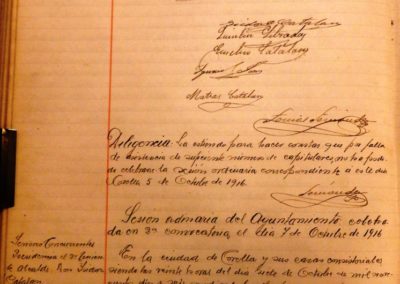 Isidoro Catalan
Quintin Librada
Eusebio Catalan
Ignacio
Matias Catalan
Diligencia: La extiendo para hacer constar que por falta
de asistencia de suficiente número de capitulares, no ha podido
celebrarse la sesión ordinaria correspondiente a este dia
Corella 5 de Octubre de 1916.
Sesion ordinaria del Ayuntamiento, celebra-
da en 2ª convocatoria, el día 7 de Octubre de 1916
Señores Concurrentes
Presidencia el 2º Teniente
de Alcalde, Don Isidoro
Catalan
En la ciudad de Corella y sus casas consistoriales
siendo las veinte horas del día siete de Octubre de mil nove-